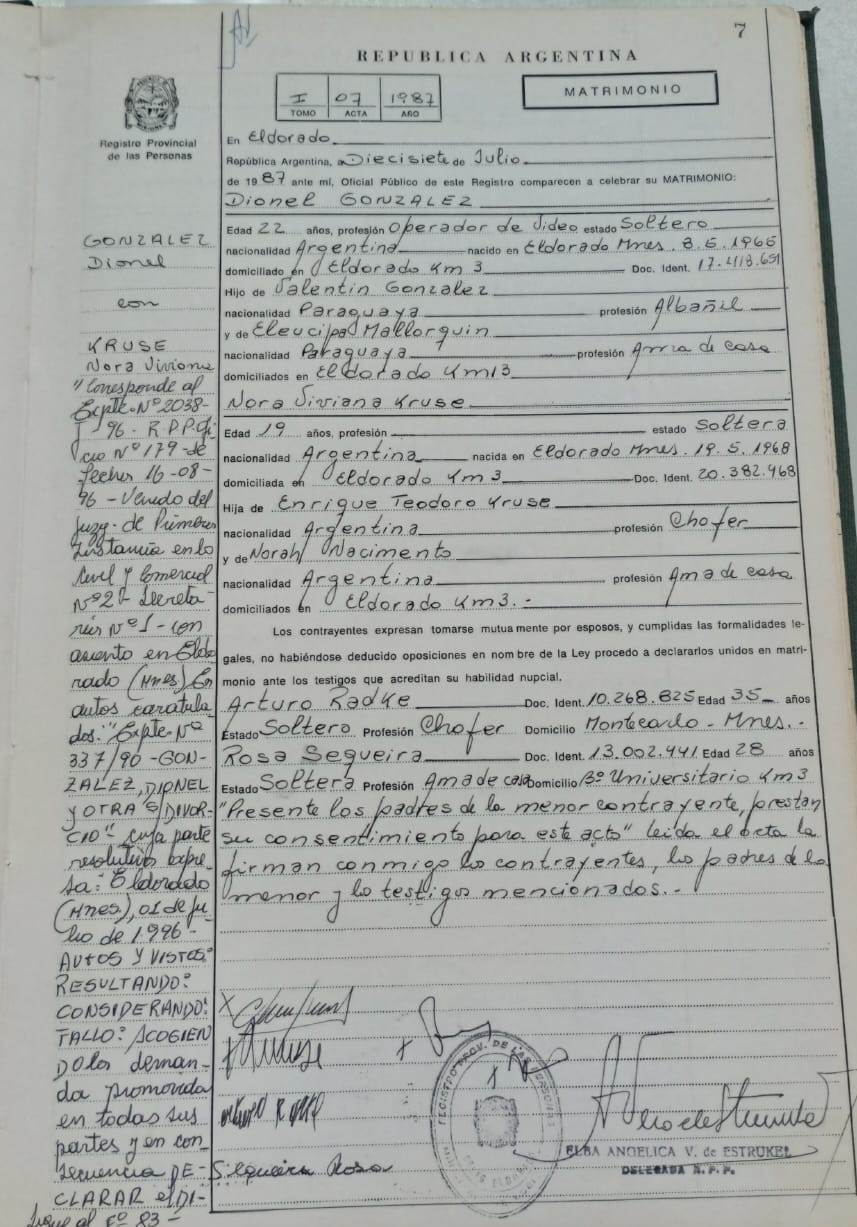 7
REPUBLICA ARGENTINA
I 07 1987
TOMO ACTA AÑO
MATRIMONIO
Registro Provincial
de las Personas
En Eldorado
República Argentina, a Diecisiete de Julio
de 1987 ante mí, Oficial Público de este Registro comparecen a celebrar su MATRIMONIO:
Dionel GONZALEZ
Edad 22 años, profesión Operador de Video estado Soltero
nacionalidad Argentina nacido en Eldorado Mnes. 8.6.1965
domiciliado en Eldorado Km 3 Doc. Ident. 17.413.651
Hijo de Valentin Gonzalez
nacionalidad Paraguaya profesión Albañil
y de Mallorquin
nacionalidad Paraguaya profesión Ama de casa
domiciliados en Eldorado Km13
Nora Viviana Kruse
Edad 19 años, profesión estado Soltera
nacionalidad Argentina nacida en Eldorado Mnes. 19.5.1968
domiciliada en Eldorado Km 3 Doc. Ident. 20.382.468
Hija de Enrique Teodoro Kruse
nacionalidad Argentina profesión Chofer
y de Norah Nacimento
nacionalidad Argentina profesión Ama de casa
domiciliados en Eldorado Km3.-
Los contrayentes expresan tomarse mutuamente por esposos, y cumplidas las formalidades le-
gales, no habiéndose deducido oposiciones en nombre de la Ley procedo a declararlos unidos en matri-
monio ante los testigos que acreditan su habilidad nupcial.
Arturo Radke Doc. Ident. 10.268.825 Edad 35 años
Estado Soltero Profesión Chofer Domicilio Montecarlo - Mnes.-
Rosa Sequeira Doc. Ident. 13.002.441 Edad 28 años
Estado Soltera Profesión Ama de casa Domicilio Bº Universitario Km3
"Presente los padres de la menor contrayente, prestan
su consentimiento para este acto" leida el acta la
firman conmigo los contrayentes, los padres de la
menor y lo testigos mencionados.-
GONZALEZ
Dionel
con
KRUSE
Nora Viviana
"Corresponde al
Expte. Nº 2038-
96 - R.P.P. Ofi
cio Nº 179 - de
fecha 16-08-
96 - Venido del
Juzg. de Primera
Instancia en lo
Civil y Comercial
Nº 2 - Secreta-
ria Nº 1 - con
asiento en Eldo
rado (Mnes) En
autos caratula
dos: "Expte Nº
337/90 - GON-
ZALEZ, DIONEL
y OTRA S/DIVOR-
CIO" - cuya parte
resolutiva expre-
sa: Eldorado
(Mnes), 01 de Ju
lio de 1.996-
AUTOS Y VISTOS:
RESULTANDO:
CONSIDERANDO:
FALLO: ACOGIEN
DO la deman-
da promovida
en todas sus
partes y en con
secuencia DE-
CLARAR el DI-
Sigue al Fº 83-
Siqueira Rosa
REGISTRO PROV. DE LAS PERSONAS
ELBA ANGELICA V. de ESTRUKEL
DELEGADA R. P. P.